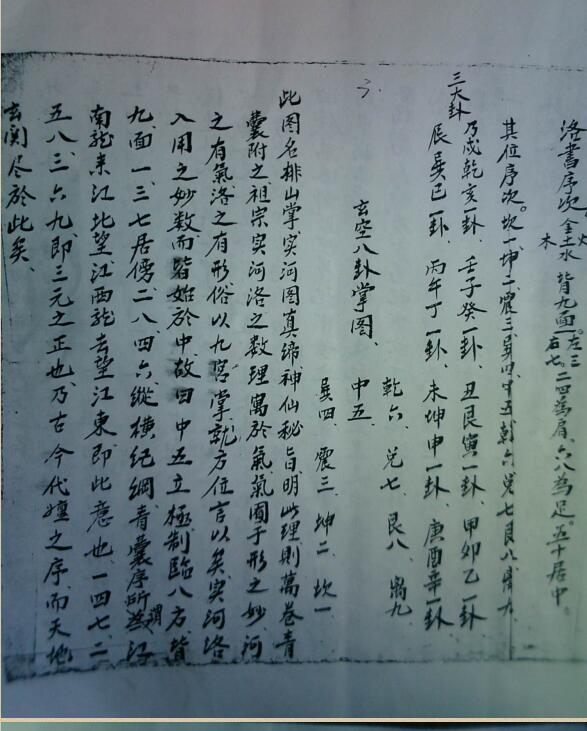 洛書序次 金土水 火 木 皆九面。左三右七。二四為肩、六八為足。五十居中。
其位序次。坎一坤二震三巽四中五乾六兌七艮八離九
三大卦 乃戌乾亥一卦、壬子癸一卦、丑艮寅一卦、甲卯乙一卦
辰巽巳一卦、丙午丁一卦、未坤申一卦、庚酉辛一卦
乾六、兌七、艮八、離九
中五、
巽四、震三、坤二、坎一
玄空八卦掌图、
此图名排山掌实河图真缔神仙秘旨、明此理則萬卷青
囊附之祖宗实河洛之数理寓於氣氣囿于形之妙河
之有氣洛之有形俗以九宮掌乾方位言以矣实河洛
入用之妙数而皆始於中、故曰中五立極制臨八方皆
九、面一、三七居傍、二八、四六、縱橫紀綱、青囊序所謂江
南龍来江北望、江西龍去望江東、即此意也、一四七、二
五八、三六九、即三元之正也、乃古今代嬗之序、而天地
玄関尽於此矣、